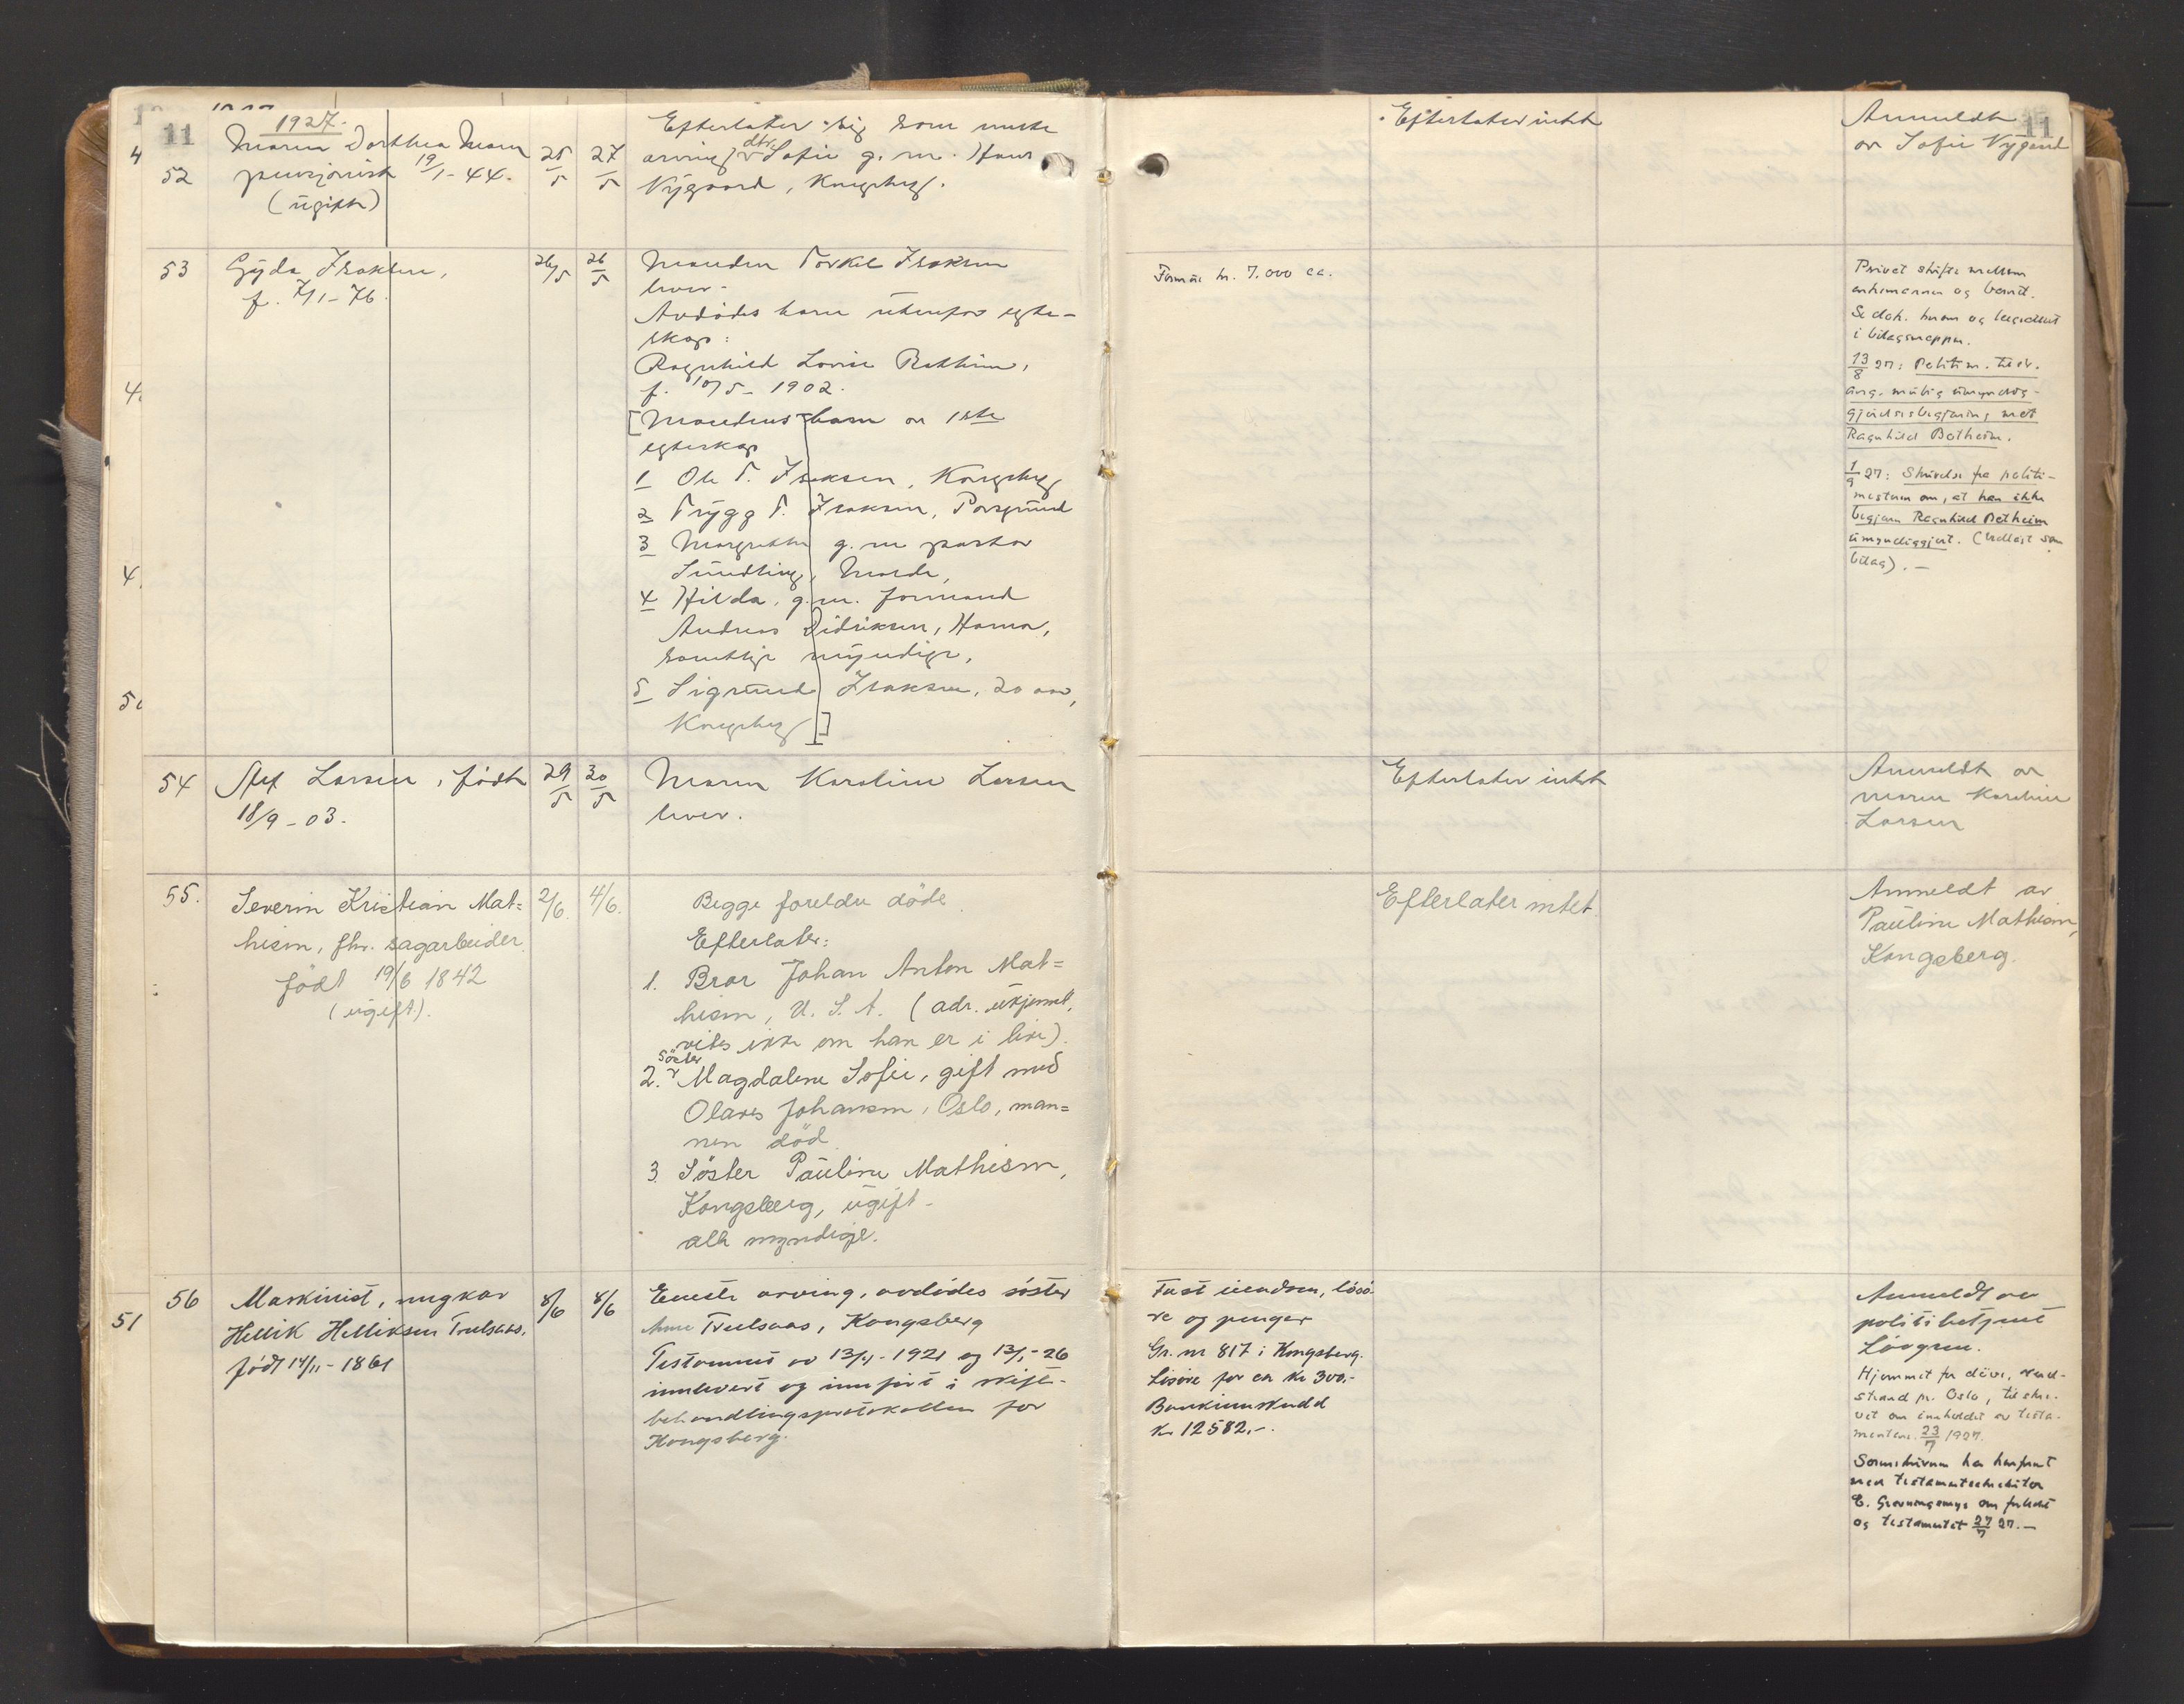 11
1927.
52
Maren Dorthea Moen
pensjonist 19/1-44.
(ugift)
25/5
27/5
Efterlater sig som eneste
arving dtr. Sofie g. m. Hans
Nygaard, Kongsberg.
Efterlater intet
Anmeldt
av Sofie Nygaard
11
53
Gyda Isaksen,
f. 7/1-76.
26/5
26/5
Manden Torkel Isaksen
lever.
Avdødes barn utenfor egte-
skap:
Ragnhild Lovise Botheim,
f. 10/5-1902.
[Mandens barn av 1ste
egteskap
1 Ole T. Isaksen, Kongsberg
2 Trygg T. Isaksen, Porsgrund
3 Margrethe g. m. pastor
Sundling, Molde,
4 Hilda, g. m. formand
Andreas Didriksen, Hamar,
samtlige myndige,
5 Sigmund Isaksen, 20 aar,
Kongsberg]
Formue kr. 7.000 ca.
Privat skifte mellem
enkemannen og barnet.
Se dok. herom og begjæret
i bilagsmappen.
13/8 27: Politim. tilskr.
ang. mulig umyndig-
gjørelsesbegjæring mot
Ragnhild Botheim.
1/9 27: Skrivelse fra politi-
mesteren om, at han ikke
begjærer Ragnhild Botheim
umyndiggjort. (Vedlagt som
bilag).-
54
Larsen, født
18/9-03.
29/5
30/5
Moren Karoline Larsen
lever.
Efterlater intet
Anmeldt av
moren Karoline
Larsen
55.
Severin Kristian Mat=
hisen, fhv. sagarbeider
født 19/6 1842
(ugift).
2/6.
4/6.
Begge foreldre döde
Efterlater:
1. Bror Johan Anton Mat=
hisen, U. S. A. (adr. ukjent,
vites ikke om han er i live).
2. søster Magdalene Sofie, gift med
Olaves Johansen, Oslo, man=
nen död
3. Söster Pauline Mathisen,
Kongsberg, ugift.
alle myndige.
Efterlater intet.
Anmeldt av
Pauline Mathisen,
Kongsberg.
56
Maskinist, ungkar
Hellik Helliksen Trulsaas,
født 14/11-1861
8/6
8/6
Eneste arving, avdödes söster
Anne Trulsaas, Kongsberg
Testament av 13/4-1921 og 13/1-26
innlevert og innført i skifte-
behandlingsprotokollen for
Kongsberg.
Fast eiendom, lösö-
re og penger
Gr. nr 817 i Kongsberg.
Lösöre for ca kr 300,-
Bankinnskudd
kr 12582,-.
Anmeldt av
politibetjent
Lövgren.
Hjemmet for döve, Nord-
strand pr. Oslo, tilskre-
vet om innholdet av testa-
mentene. 23/7 1927.
Sorenskriveren har konferert
med testamenteksekutor
E. Grevningsmyr om forholdet
og testamentet 27/7 27.-
4
4.
4.
50
51